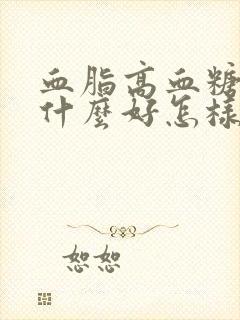 血脂高血糖
什麼好怎樣
恕恕